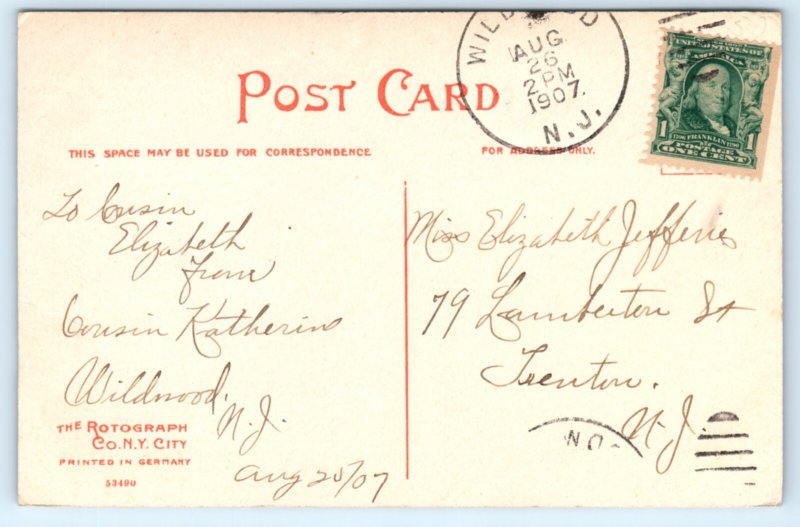 POST CARD
WILDWOOD
AUG
26
2 PM
1907.
N.J.
UNITED STATES OF
AMERICA
1 1706 FRANKLIN 1790 1
POSTAGE
ONE CENT
THIS SPACE MAY BE USED FOR CORRESPONDENCE
FOR ADDRESS ONLY.
To Cusin
Elizabeth
from
Cousin Katherine
Wildwood,
N.J.
Aug 25/07
THE ROTOGRAPH
CO. N.Y. CITY
PRINTED IN GERMANY
53490
Miss Elizabeth Jefferies
79 Lamberton St
Trenton.
N.J.